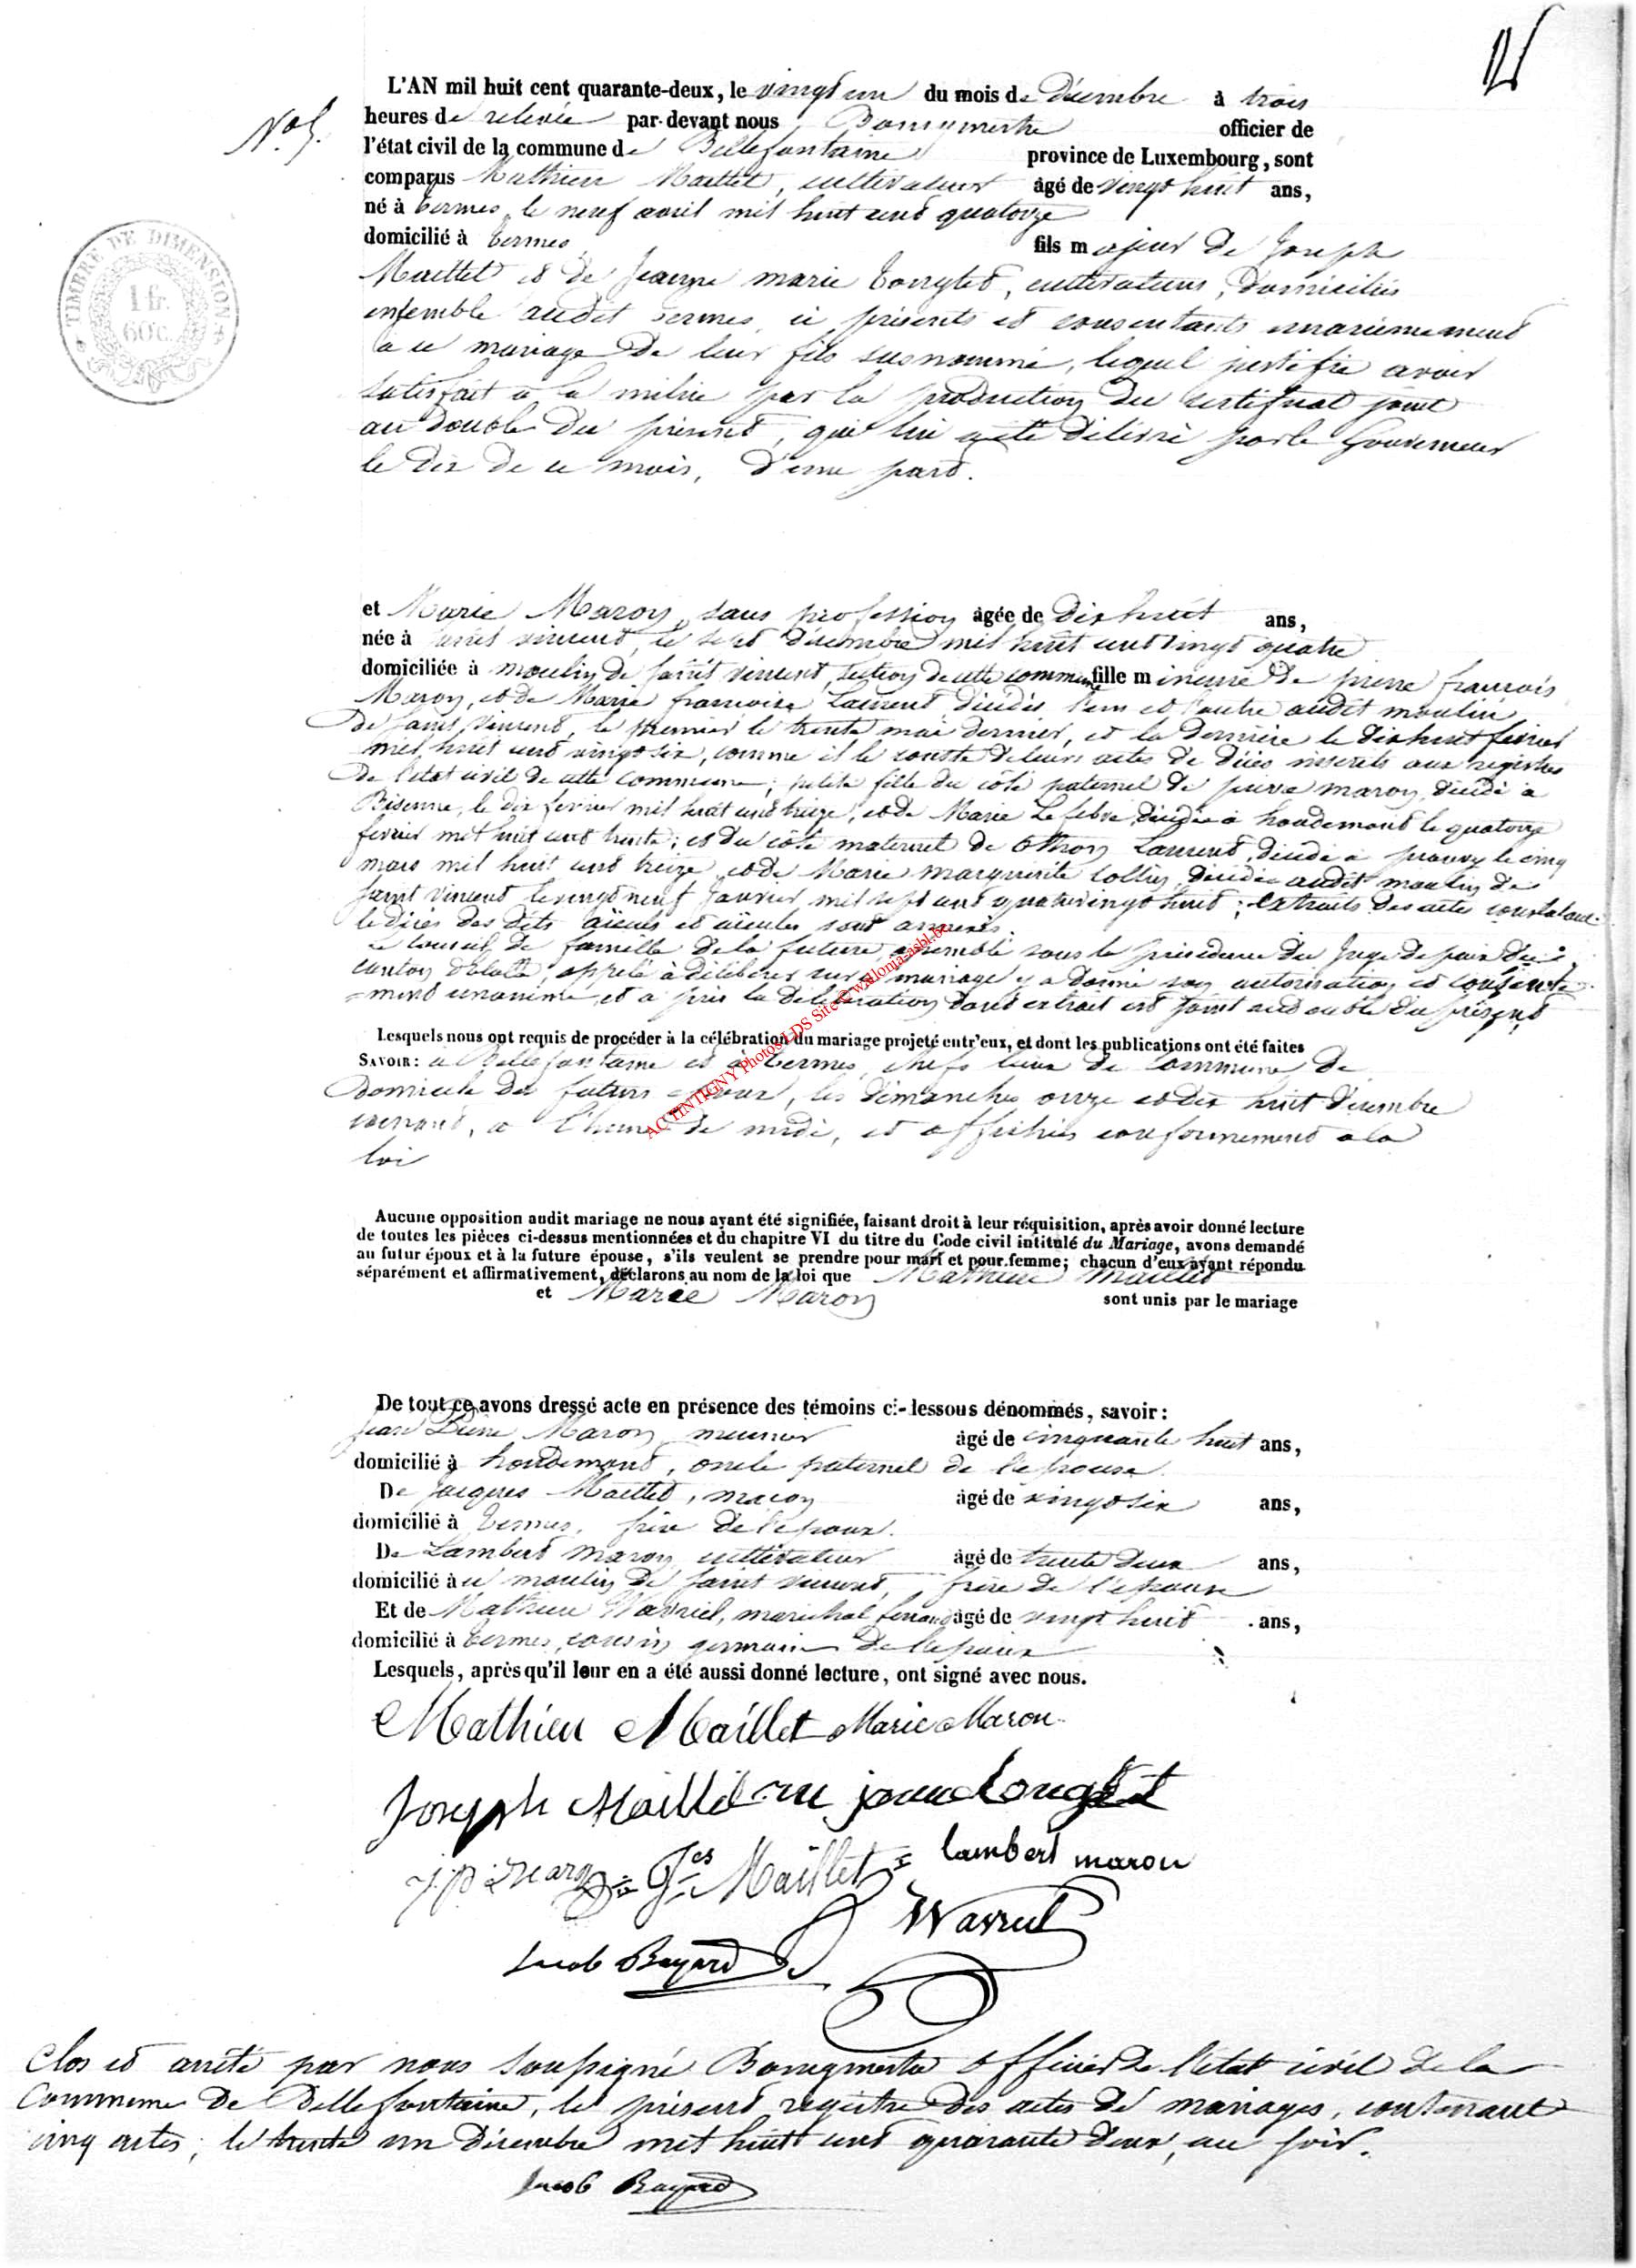 L'AN mil huit cent quarante-deux, le vingt un du mois de Décembre à trois
N.° 5.
heures de relevée par-devant nous, Bourgmestre officier de
l'état civil de la commune de Bellefontaine province de Luxembourg, sont
comparus Mathieu Maillet, cultivateur âgé de vingt huit ans,
né à termes, le neuf avril mil huit cent quatorze
domicilié à termes, fils majeur de Joseph
Maillet et de Jeanne marie , cultivateurs, domiciliés
ensemble audit termes, ici présents et consentants
a ce mariage de leur fils susnommé, lequel justifie avoir
satisfait à la milice par la production du certificat joint
au double du présent, qui lui a été délivré par le Gouverneur
le dix de ce mois, d'une part.
TIMBRE DE DIMENSION
1 fr.
60c.
et Marie Maron, sans profession âgée de dix huit ans,
née à saint vincent, le sept Décembre mil huit cent vingt quatre
domiciliée à moulin de saint vincent, section de cette commune fille mineure de pierre françois
Maron, et de Marie françoise Laurent décédés l'un et l'autre audit moulin
de saint Vincent, le premier le trente mai dernier, et la dernière le dix huit février
mil huit cent vingt six, comme il le conste de leurs actes de décès inserés aux registres
de l'état civil de cette commune; petite fille du côté paternel de pierre maron, décédé à
le dix février mil huit cent treize, et de Marie Lefebvre, décédée à houdemont le quatorze
février mil huit cent trente; et du côté maternel de Laurent, décédé à prouvy le cinq
mars mil huit cent treize, et de Marie marguerite Collin, décédée audit moulin de
saint Vincent le vingt neuf Janvier mil sept cent quatre vingt huit; extraits des actes constatant
le décès des dits aïeuls et aïeules sont annexés.
Le Conseil de famille de la future, assemblé sous la présidence du Juge de paix du
canton d'étalle, appelé à délibérer sur ce mariage y a donné son autorisation et consente-
=ment unanime, et a pris la délibération dont extrait est joint au double du présent
Lesquels nous ont requis de procéder à la célébration du mariage projeté entr'eux, et dont les publications ont été faites
SAVOIR: à Bellefontaine et à termes, chefs lieux de commune de
domicile des futurs époux, les dimanches onze et dix huit Décembre
courant, à l'heure de midi, et affichées conformément à la
loi
AC TINTIGNY Photos LDS Site © wallonia-asbl.be
Aucune opposition audit mariage ne nous ayant été signifiée, faisant droit à leur réquisition, après avoir donné lecture
de toutes les pièces ci-dessus mentionnées et du chapitre VI du titre du Code civil intitulé du Mariage, avons demandé
au futur époux et à la future épouse, s'ils veulent se prendre pour mari et pour femme; chacun d'eux ayant répondu
séparément et affirmativement, déclarons au nom de la loi que Mathieu Maillet
et Marie Maron sont unis par le mariage
De tout ce avons dressé acte en présence des témoins ci-dessous dénommés, savoir:
Jean Pierre Maron, meunier âgé de cinquante huit ans,
domicilié à houdemont, oncle paternel de l'épouse.
De Jacques Maillet, maçon âgé de vingt six ans,
domicilié à termes, frère de l'époux.
De Lambert maron, cultivateur âgé de trente deux ans,
domicilié à u moulin de saint vincent, frère de l'épouse
Et de Mathieu Wavriel, maréchal ferrant âgé de vingt huit ans,
domicilié à termes, cousin germain de l'époux
Lesquels, après qu'il leur en a été aussi donné lecture, ont signé avec nous.
Mathieu Maillet Marie Maron
Joseph Maillet
j.p. maron = Jes Maillet = lambert maron
Jacob Bayard
Clos et arrêté par nous soussigné Bourgmestre officier de l'état civil de la
Commune de Bellefontaine, le présent registre des actes de mariages, contenant
cinq actes; le trente un Décembre mil huit cent quarante deux, au soir.
Jacob Bayard